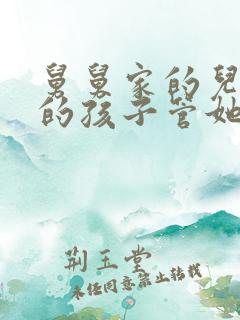 舅舅家的兒
的孩子管她
荆玉堂
未任同意禁止转载